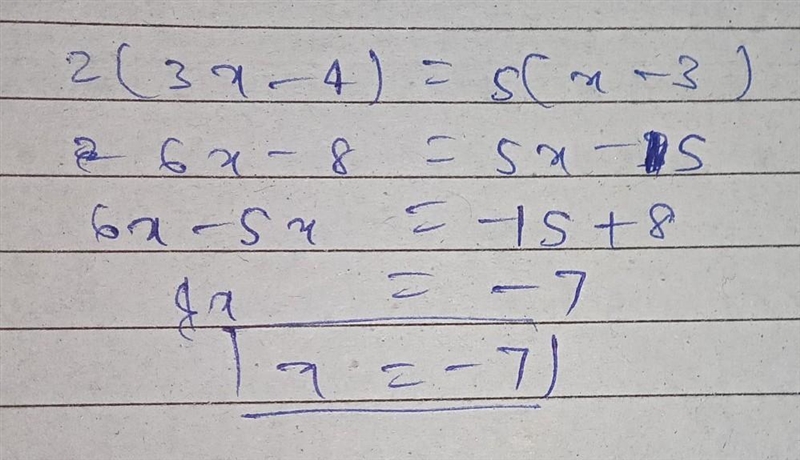 2(3x-4) = 5(x-3)
6x-8 = 5x-15
6x-5x = -15+8
x = -7
x = -7